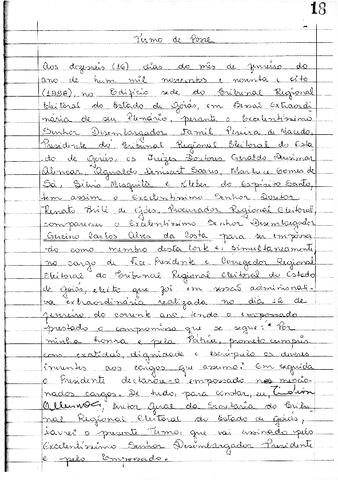 18
Termo de Posse
Aos dezesseis (16) dias do mês de janeiro do
ano de hum mil novecentos e noventa e oito
(1998), no Edifício sede do Tribunal Regional
Eleitoral do Estado de Goiás, em Sessão Extraordi
nária de seu Plenário, perante o Excelentíssimo
Senhor Desembargador Jamil Pereira de Macedo,
Presidente do Tribunal Regional Eleitoral do Esta
do de Goiás, os Juízes Doutores Geraldo
Alencar, Agnaldo Denisart Soares, Gomes de
Sá, Sílvio Mesquita e Kleber do Espírito Santo,
bem assim o Excelentíssimo Senhor Doutor
Renato Brill de Góes, Procurador Regional Eleitoral,
compareceu o Excelentíssimo Senhor Desembargador
Carlos Alves da Costa para ser empossa
do como membro desta Corte e, simultaneamente
no cargo de Vice-Presidente e Corregedor Regional
Eleitoral do Tribunal Regional Eleitoral do Estado
de Goiás, eleito que foi em sessão administrati-
va extraordinária realizada no dia de
janeiro do corrente ano, tendo o empossado
prestado o compromisso que se segue: "Por
minha honra e pela Pátria, prometo cumprir
com exatidão, dignidade e escrúpulo os deveres
inerentes aos cargos que assumo". Em seguida
o Presidente declarou-o empossado nos mencio-
nados cargos. De tudo, para constar, eu,
, Diretor Geral da Secretaria do Tribu
nal Regional Eleitoral do Estado de Goiás,
lavrei o presente Termo, que vai assinado pelo
Excelentíssimo Senhor Desembargador Presidente
e pelo Empossado.